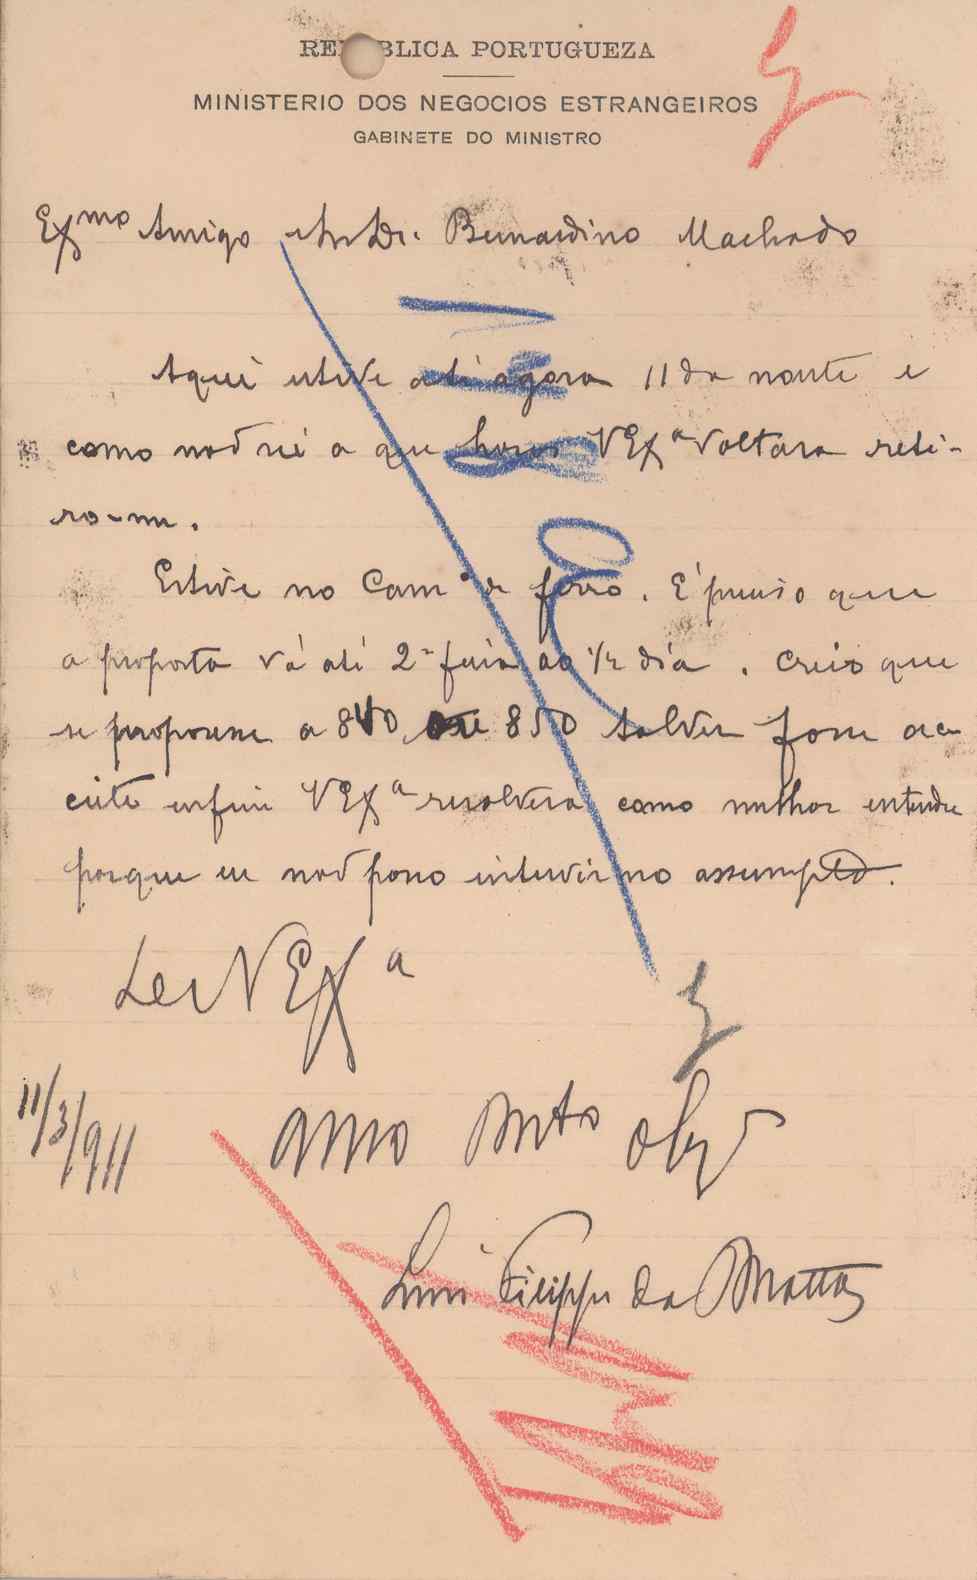 REPUBLICA PORTUGUEZA
MINISTERIO DOS NEGOCIOS ESTRANGEIROS
GABINETE DO MINISTRO
Exmo Amigo Snr Dr. Bernardino Machado
Aqui estive até agora 11 da noute e
como não sei a que horas VExª Voltara reti-
ro-me.
Estive no Camº de ferro. É preciso que
a proposta vá até 2ª feira ao 1/2 dia. Creio que
se propozesse a 840 850 talvez fosse ac
ceite enfim VExª resolverá como melhor entender
porque eu não posso intervir no assumpto.
De VExª
11/3/911
Amo Mto Obgº
Luiz Filippe da Matta